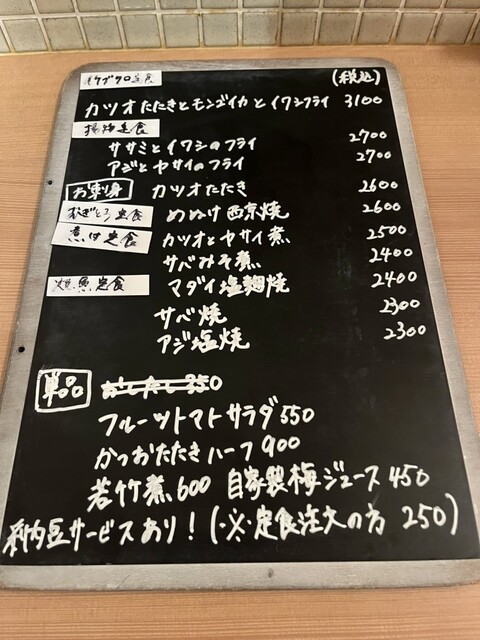 イケブクロ定食 (税込)
カツオたたきとモンゴイカとイワシフライ 3100
揚物定食
ササミとイワシのフライ 2700
アジとヤサイのフライ 2700
お刺身 カツオたたき 2600
むぎとろ定食 めぬけ西京焼 2600
煮付定食 カツオとヤサイ煮 2500
サバみそ煮 2400
焼魚定食 マダイ塩麹焼 2400
サバ焼 2300
アジ塩焼 2300
単品 おひたし 350
フルーツトマトサラダ 550
かつおたたきハーフ 900
若竹煮 600 自家製梅ジュース 450
納豆サービスあり！(※定食注文の方 250)